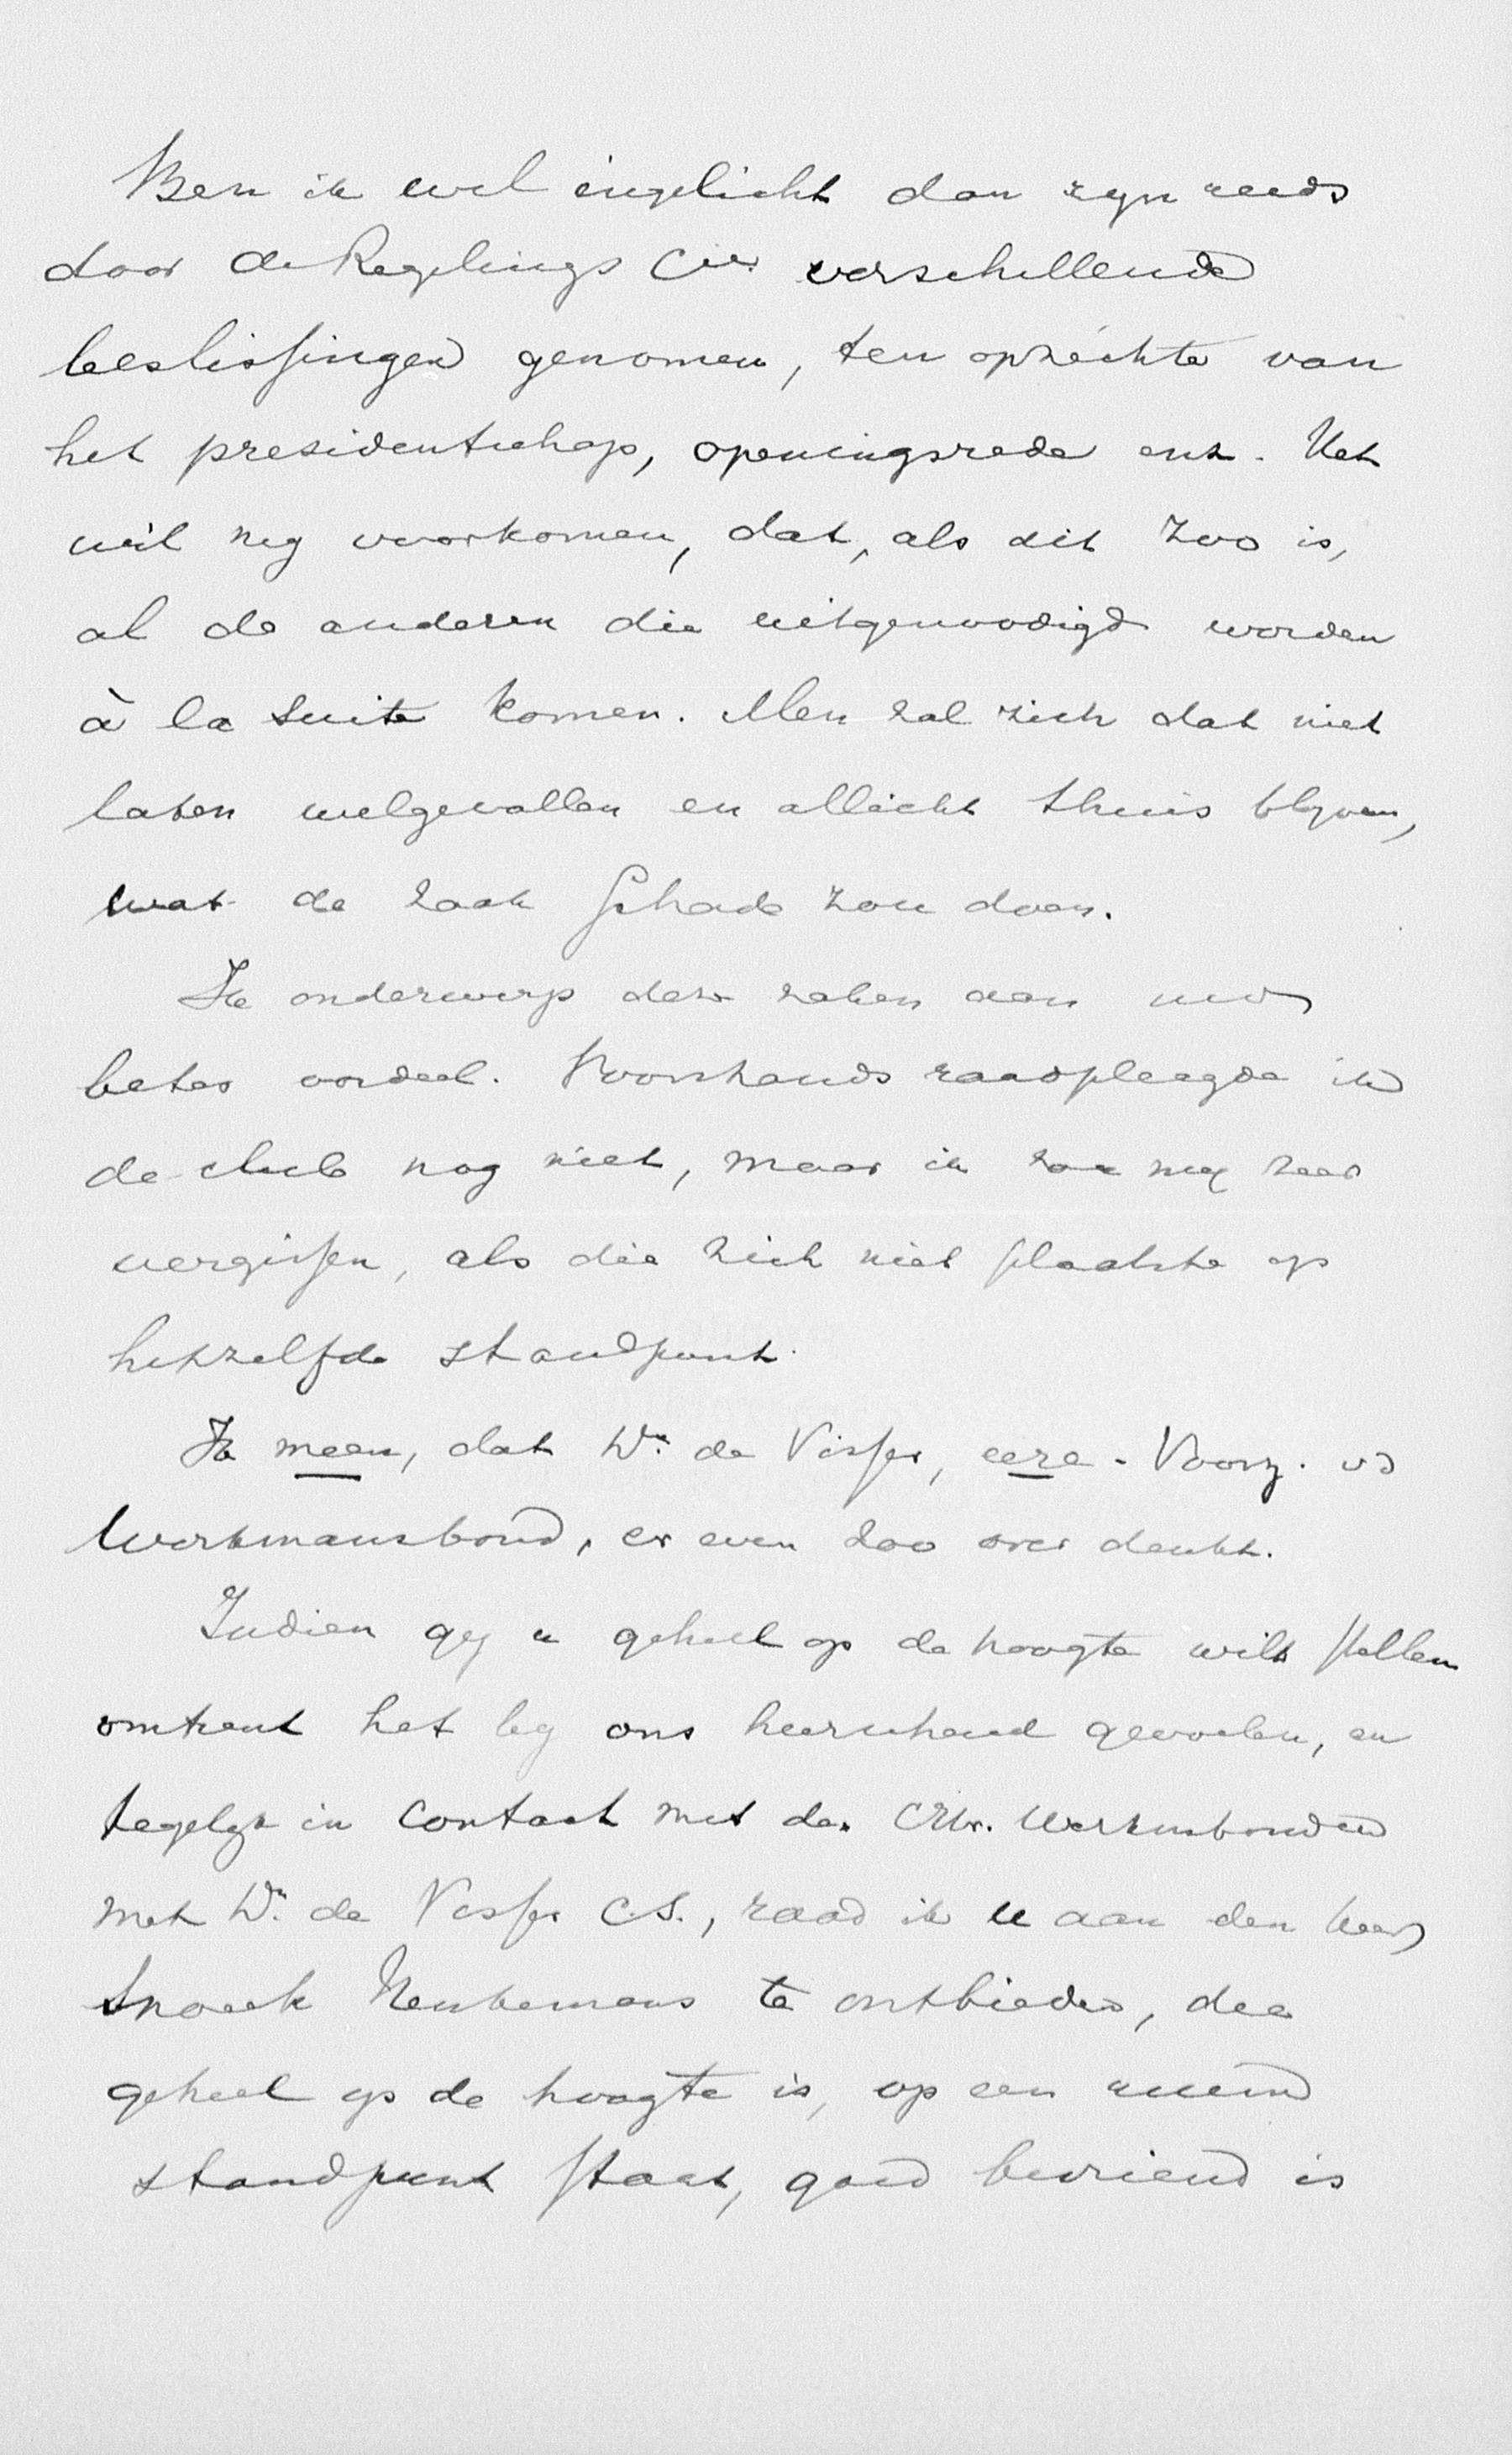 Ben ik wel ingelicht dan zijn reeds
door de Regelings Cie. verschillende
beslissingen genomen, ten opzichte van
het presidentschap, openingsrede enz. Het
wil mij voorkomen, dat, als dit zoo is,
al de anderen die uitgenoodigd worden
à la suite komen. Men zal zich dat niet
laten welgevallen en allicht thuis blijven,
wat de zaak schade zou doen.
Ik onderwerp deze zaken aan uw
beter oordeel. Voorshands raadpleegde ik
de club nog niet, maar ik zou mij zeer
vergissen, als die zich niet plaatste op
hetzelfde standpunt.
Ik meen, dat Dr. de Visser, eere-Voorz. vd
Werkmansbond, er even zoo over denkt.
Indien gij u geheel op de hoogte wilt stellen
omtrent het bij ons heerschend gevoelen, en
tegelijk in contact met de Chr. Werkmsbonden
met Dr. de Visser c.s., raad ik u aan den heer
Snoeck Henkemans te ontbieden, die
geheel op de hoogte is, op een ruim
standpunt staat, goed bevriend is